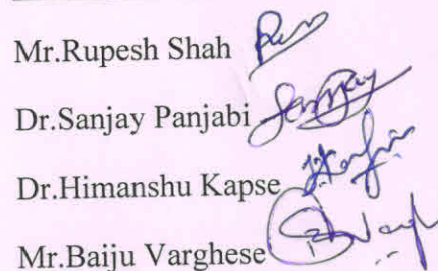 Mr.Rupesh Shah
Dr.Sanjay Panjabi
Dr.Himanshu Kapse
Mr.Baiju Varghese